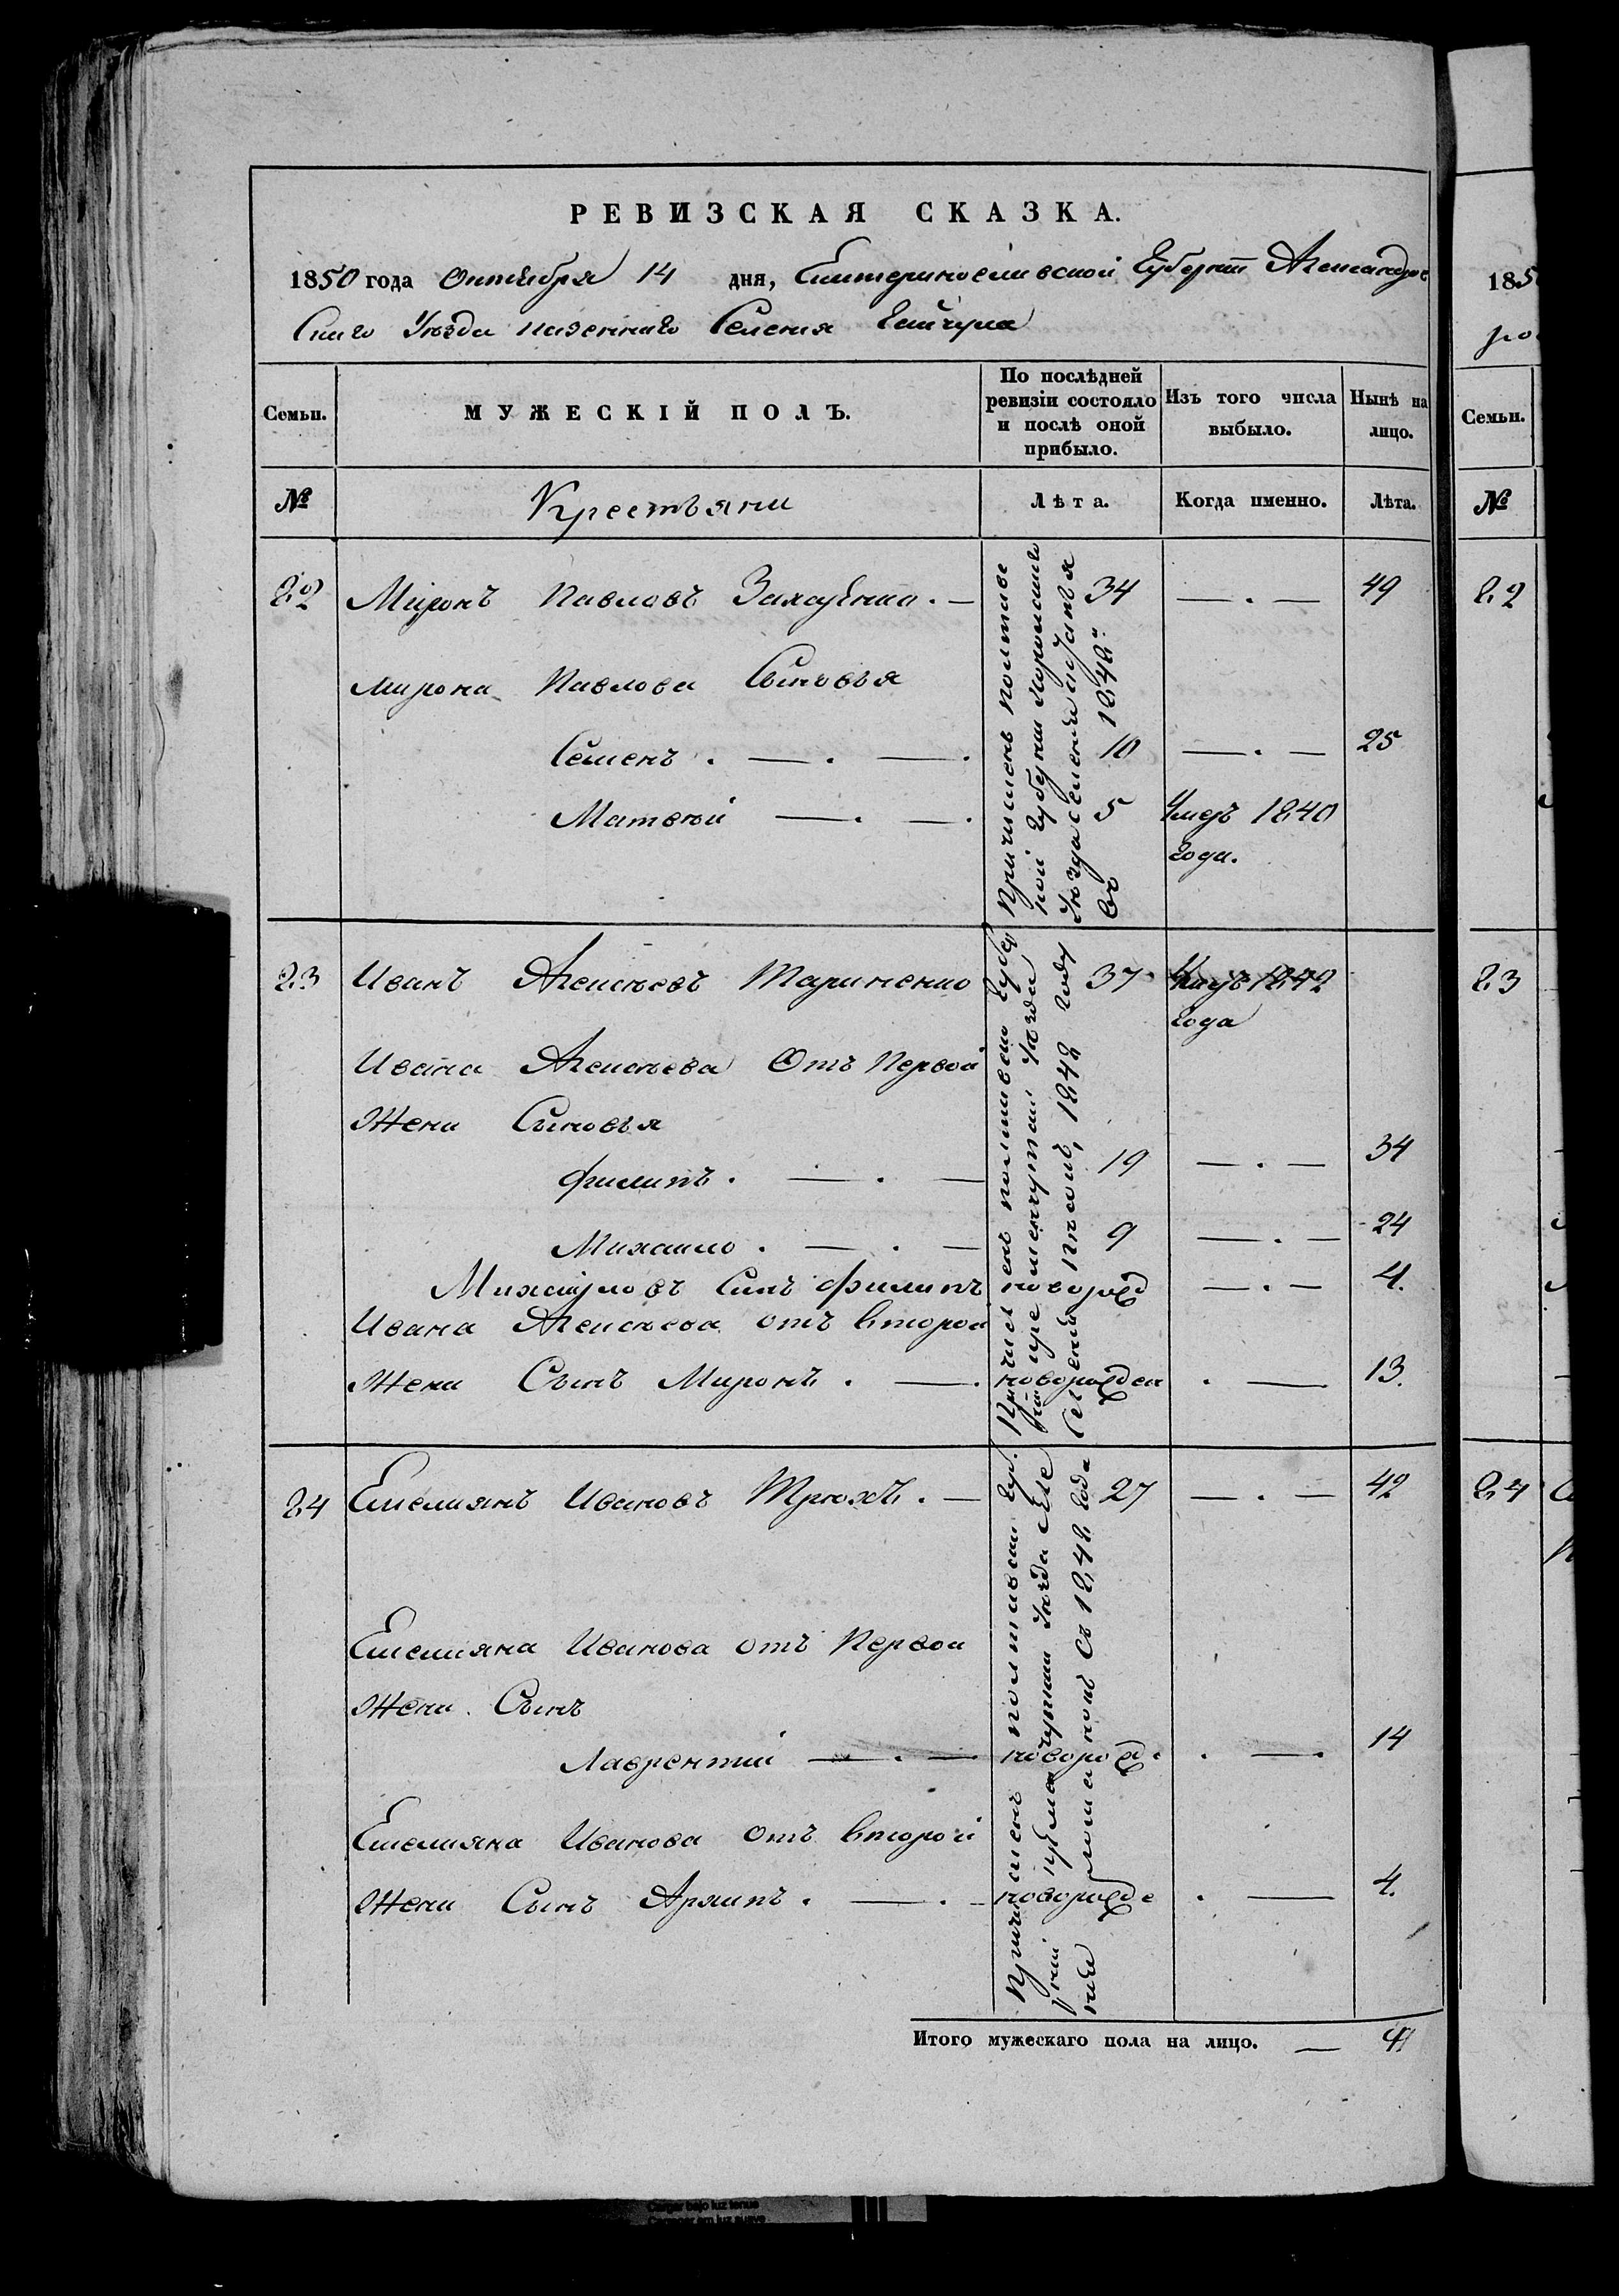 РЕВИЗСКАЯ СКАЗКА.
1850 года Октября 14 дня, Екатеринославской Губерніи Александров
скаго Уезда казеннаго Селения Гайчула
Семьи.
МУЖЕСКІЙ ПОЛЪ.
По послѣдней ревизіи состояло и послѣ оной прибыло.
Изъ того числа выбыло.
Нынѣ на лицо.
№
Крестьяни
Лѣта.
Когда именно.
Лѣта.
22 Миронъ Павловъ 34 — . — 49
Мирона Павлова Сыновья
Семенъ . — . — . 10 — . — 25
Матвѣй — . — . 5 Умеръ 1840
года.
Причисленъ Полтавс
кой Губерніи
Уезда селения
въ 1848
23 Иванъ Алексѣевъ Мариненко 37 Умеръ 1842
года
Ивана Алексѣева Отъ Первой
Жени Сыновья
Филипъ . — . — 19 — . — 34
Михаило . — . — 9 — . — 24
Михайловъ Синъ Филипъ новорожд — . — 4.
Ивана Алексѣева отъ второй
Жени Сынъ Миронъ . — . новорожден . — 13.
Причисленъ Полтавской Губер
ніи Кременчугскаго Уезда
Селения 1848 году
24 Емелиянъ Ивановъ . — 27 — . — 42
Емелияна Иванова отъ Первой
Жени Сынъ
Лаврентій — . — . новорожде . — . 14
Емелияна Иванова отъ второй
Жени Сынъ Архипъ . — . новорожде . — 4.
Причисленъ Полтавской Гу.
Кременчугскаго Уезда Селе
ния съ 1848 года
Итого мужескаго пола на лицо. —
185
Семьи.
№
22
23
24